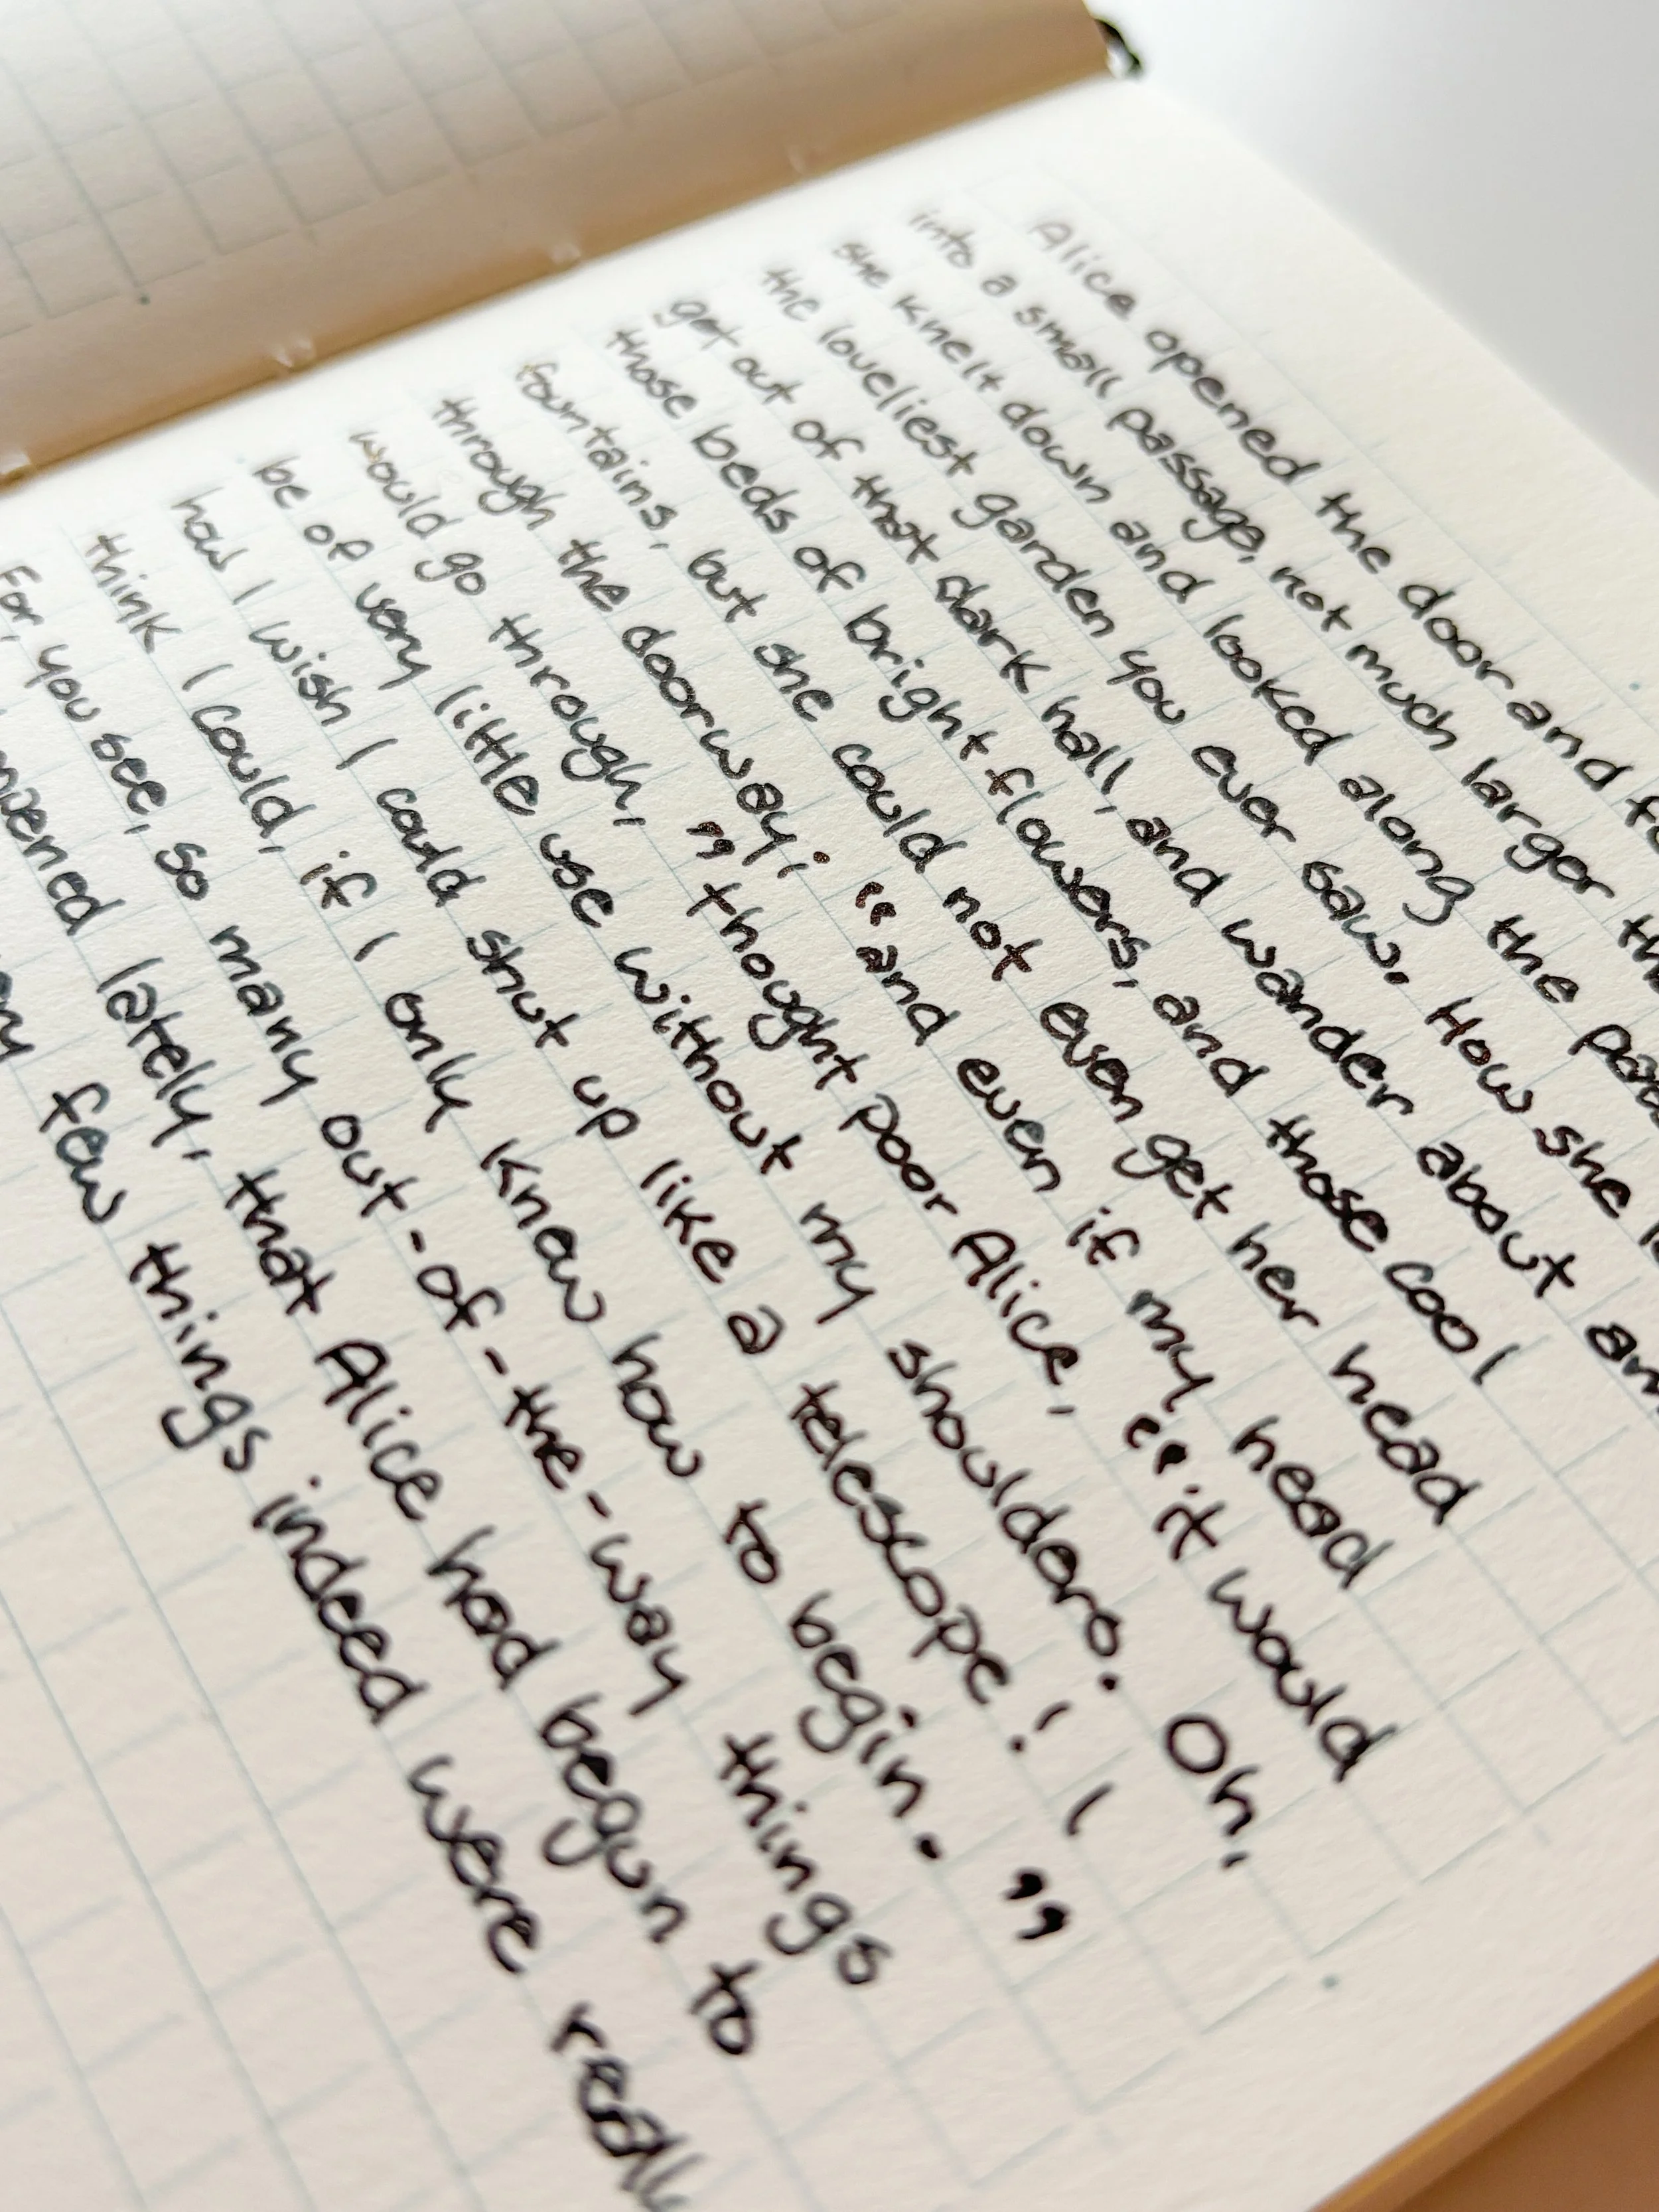 Alice opened the door and
into a small passage, not much larger
she knelt down and looked along the
the loveliest garden you ever saw. How she
get out of that dark hall, and wander about
those beds of bright flowers, and those cool
fountains, but she could not even get her head
through the doorway; "and even if my head
would go through," thought poor Alice, "it would
be of very little use without my shoulders. Oh,
how I wish I could shut up like a telescope! I
think I could, if I only knew how to begin."
For, you see, so many out-of-the-way things
lately, that Alice had begun to
few things indeed were